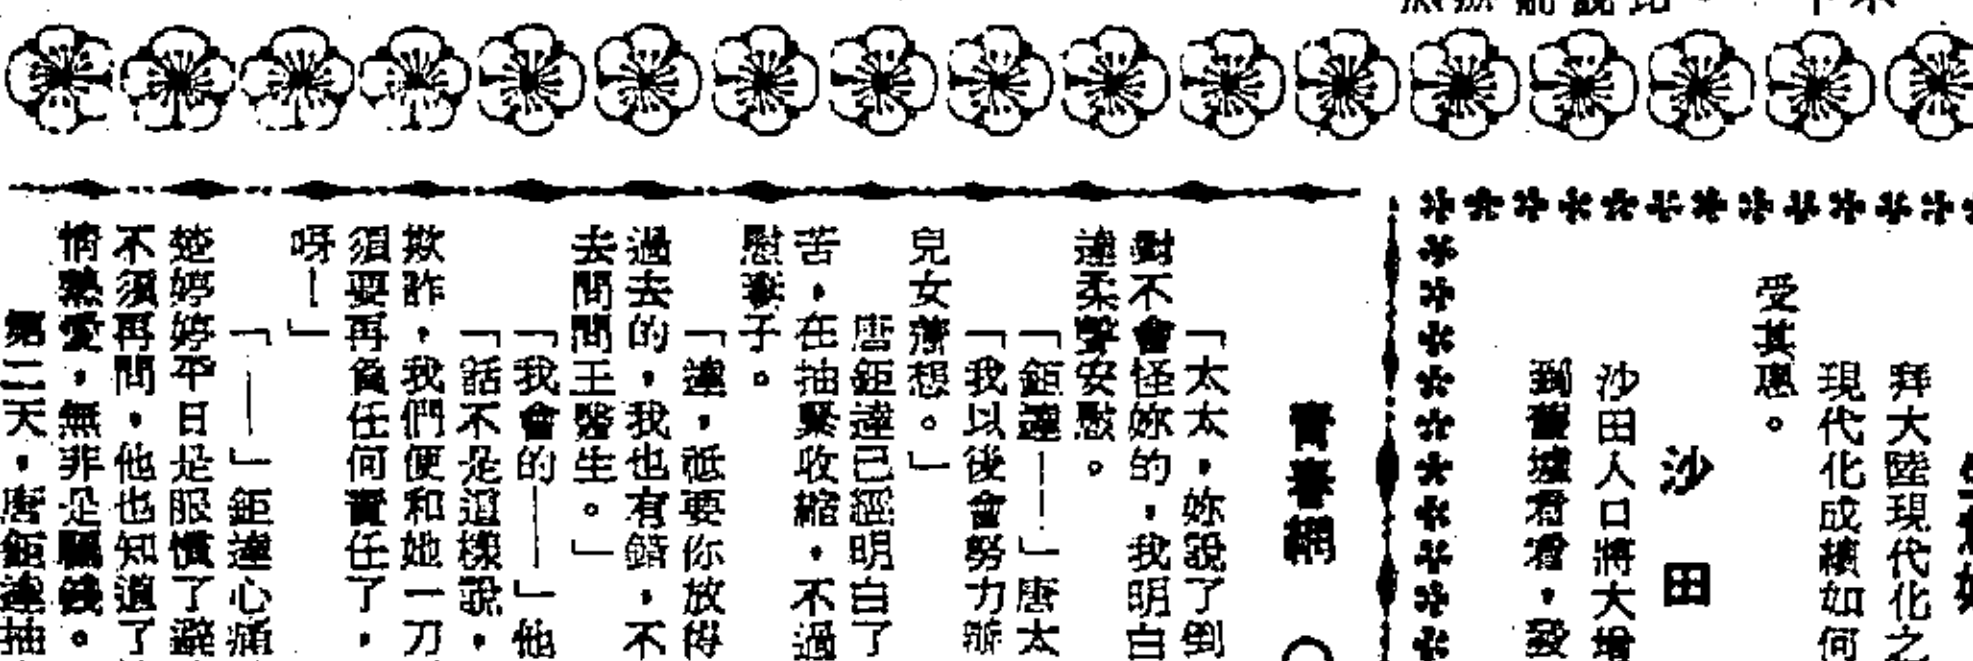 拜大陸現代化之
現代化成績如何
受其惠。
沙田
沙田人口將大增
到舊墟看看，發
青春網
「太太，妳說了倒
對不會怪妳的，我明白
達柔聲安慰。
「鉅達——」唐太
「我以後會努力辦
兒女着想。」
唐鉅達已經明白了
苦，在抽緊收縮，不過
慰妻子。
「達，祗要你放得
過去的，我也有錯，不
去問問王醫生。」
「我會的——」他
「話不是這樣說，
欺詐，我們便和她一刀
須要再負任何責任了，
呀—」
「——」鉅達心痛
楚婷婷平日是服慣了避
不須再問，他也知道了
情熱愛，無非是騙錢。
第二天，唐鉅達抽